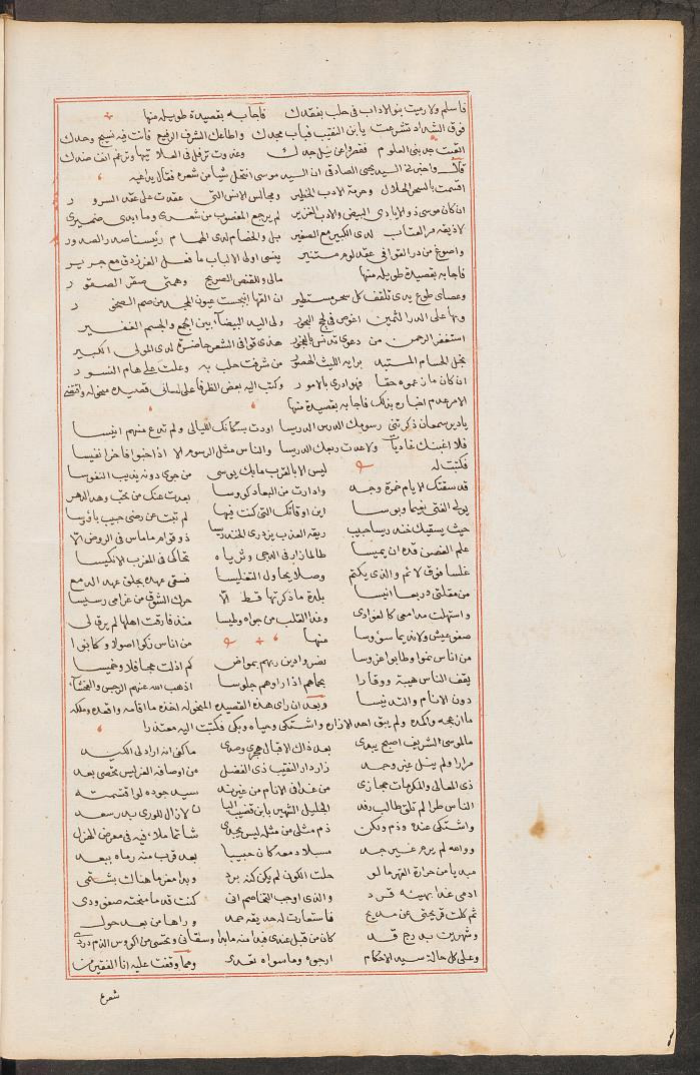 فاسلم ولا رميت بنو الاداب في حلب بفقدك فاجابه بقصيدة طويله منها
فرق الشداد تشرعت يا بن النقيب قباب مجدك واطاعك الشرف الرفيع فانت فيه نسيج وحدك
بنى العلوم فقصروا عن نيل جدك وغدوت ترفل في العلا تيها وترغم انف ضدك
قلت واخبرني السيد يحيى الصادقي ان السيد موسى انتحل شيأ من شعره فقال يداعبه
اقسمت بالسحر الحلال وحرمة الادب الخطير ومجالس الانس التي عقدت على عقد السرور
ان كان موسى ذو الايادي البيض والادب الغزير لم يرجع المغصوب من شعرى وما ابدى ضميرى
لاذيقه مر العتاب لدى الكبير مع الصغير بل والخصام لدى الهمام رئيسنا صدر الصدور
واصوغ من در القوافي عقد لوم مستنير ينسى اولى الالباب ما فعل الفرزدق مع جرير
فاجابه بقصيدة طويله منها مالى وللقنص الصريح وهمتى صقر الصقور
وعصاى طوع يدى تلقف كل سحر مستطير ان القها انبجست عيون المجد من صم الصخور
وبها على الدر الثمين اغوص في لجج البحور ولى اليد البيضآ بين الجمع والجسم الغفير
استغفر الرحمن من دعوى تدنس بالفجور هذى قوافى الشعر حاضرة لدى المولى الكبير
نجل الحسام المستبد برايه الليث الهصور من شرفت حلب به وعلت على هام النسور
ان كان ما زعموه حقا فهو ادرى بالامور وكتب اليه بعض الظرفا على لسانى قصيده منحوله واقتضى
الامر عدم اخباره بذلك فاجابه بقصيدة منها
يا دير سمعان ذكرتنى رسومك الدرس الدريسا اودت بسكانك الليالى ولم تدع منهم انيسا
فلا اغبنك غاديات ولا عدت ربعك الدريسا والناس مثل الرسوم الا اذا حبوا فاخرا نفيسا
فكتبت له ليس الا بالقرب مابك يوسى من جوى دونه يذيب النفوسا
قد سقتك الايام خمرة وجد وادارت من البعاد كوسا بعدت عنك من تحب وهذ الدهر
يوله الفتى نعيما وبوسا اين اوقاتك التى كنت فيها لم تبت عن رضى حبيب يا ؤسا
حيث يسقيك خندريسا حبيب ريقه العذب يزدرى الخندريسا ذو قوام ما ماس في الروض الا
علم الغصن قده ان يميسا طالما زار في الدجى وثرياه تحاكى في المغرب الانكيسا
غلسا فرق لائم والذى يكتم وصلا يحاول التغليسا فسقى عهده بجلق عهد الدمع
من مقلتى دربعا انيسا بلدة ما ذكرتها قط الا حرك الشوق من غرامى رسيسا
واستهلت مدامعى كالغوادى وغدا القلب من جواه وطيسا منذ فارقت اهلها لم يرق لى
صفو عيش ولا نديما سوسا منها من اناس زكوا اصولا وكانوا
من اناس نموا وطابوا غروسا نضر وادين ربهم بمواض كم اذلت عجافلا وخميسا
يقف الناس هيبة ووقارا تجاههم اذا راوهم جلوسا اذهب الله عنهم الرجس والفحشآ
دون الانام والتدنيسا وبعد ان راى هذه القصيده المنحوله اخذه ما اقامه واقعده وملكه
ما ازعجه واكده ولم يبق احد الا زاره واشتكى وحياه وبكى فكتبت اليه معتذرا
ما لموسى الشريف اصبح يبدى بعد ذاك الاقبال هجرى وصدى ما كفى انه اراد لى الكيد
مرارا ولم ينل عين وجد زار دار النقيب ذى الفضل من اوصافه الغر ليس تحصى بعد
ذى المعالى والمكرمات مجازى من غدا فى الانام من غير ند سيد جوده لو اقتسمته
الناس طرا لم تلق طالب رفد الجليل الشهير بابن قضيب البان لا زال للورى بدر سعد
واشتكى عنده وذم ولكن ذم مثلى من مثله ليس يجدى شاتما ملأ فيه فى معرض الهزل
ووالله لم يرم غير جد مسبلا دمعه كان حبيبا بعد قرب منه رماه ببعد
مبديا من حرارة القهر ما لو حلت الكون لم يكن كنه برد وبدا مغزما هناك بشتمى
ادمى عندا بهيئه قرد والذى اوجب التخاصم انى كنت قدما منحته صفو ودى
ثم كلت قريحتى عن مديح فاستعارت له حديقة حمد وراها من بعد حول
وشهرين بدرج قد كان من قبل عندى فبدا منه ما بدا وسقانى وتحسى من اكوس الذم دردى
وعلى كل حالة سيد الاحكام ارجوه وما سواه نقدى ومما وقفت عليه انا الفقير من
شعره